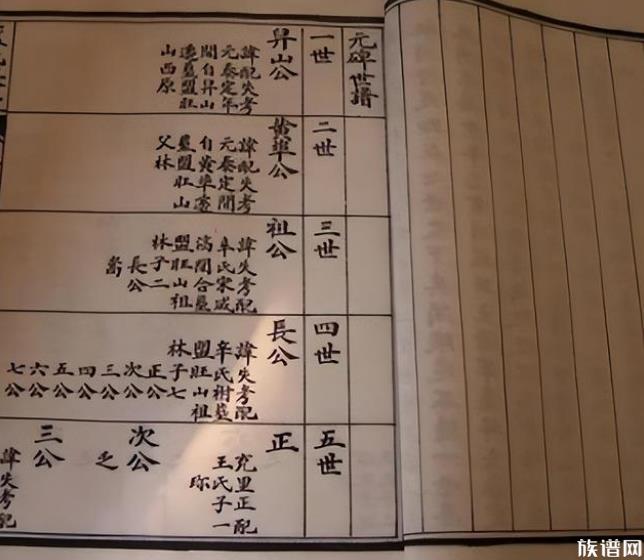 元碑世譜
一世
昇山公
諱配失考
元泰定年
間自昇山
遷墓盟旺
山西原
二世
黄埠公
諱配失考
元泰定間
自黄埠遷
墓盟旺山
父林
三世
祖公
諱失考配
牟氏宋
合墓
盟旺山祖
林子二
長公
四世
長公
諱失考配
氏樹墓
盟旺山祖
林子七
正公
次公
三公
四公
五公
六公
七公
五世
正
充里正配
王氏子一
珎
次公
之
三公
諱失考配
族谱网